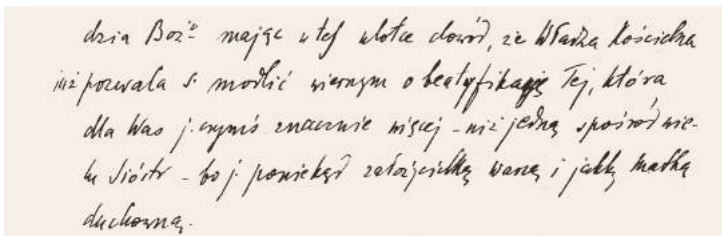 dzia Boż° mając w tej ulotce dowód, że Władza Kościelna
już pozwala s. modlić wiernym o beatyfikację Tej, która
dla Was j. czymś znacznie więcej - niż jedną spośród wie-
lu Sióstr - bo j. poniekąd założycielką waszą i jakby matką
duchowną.